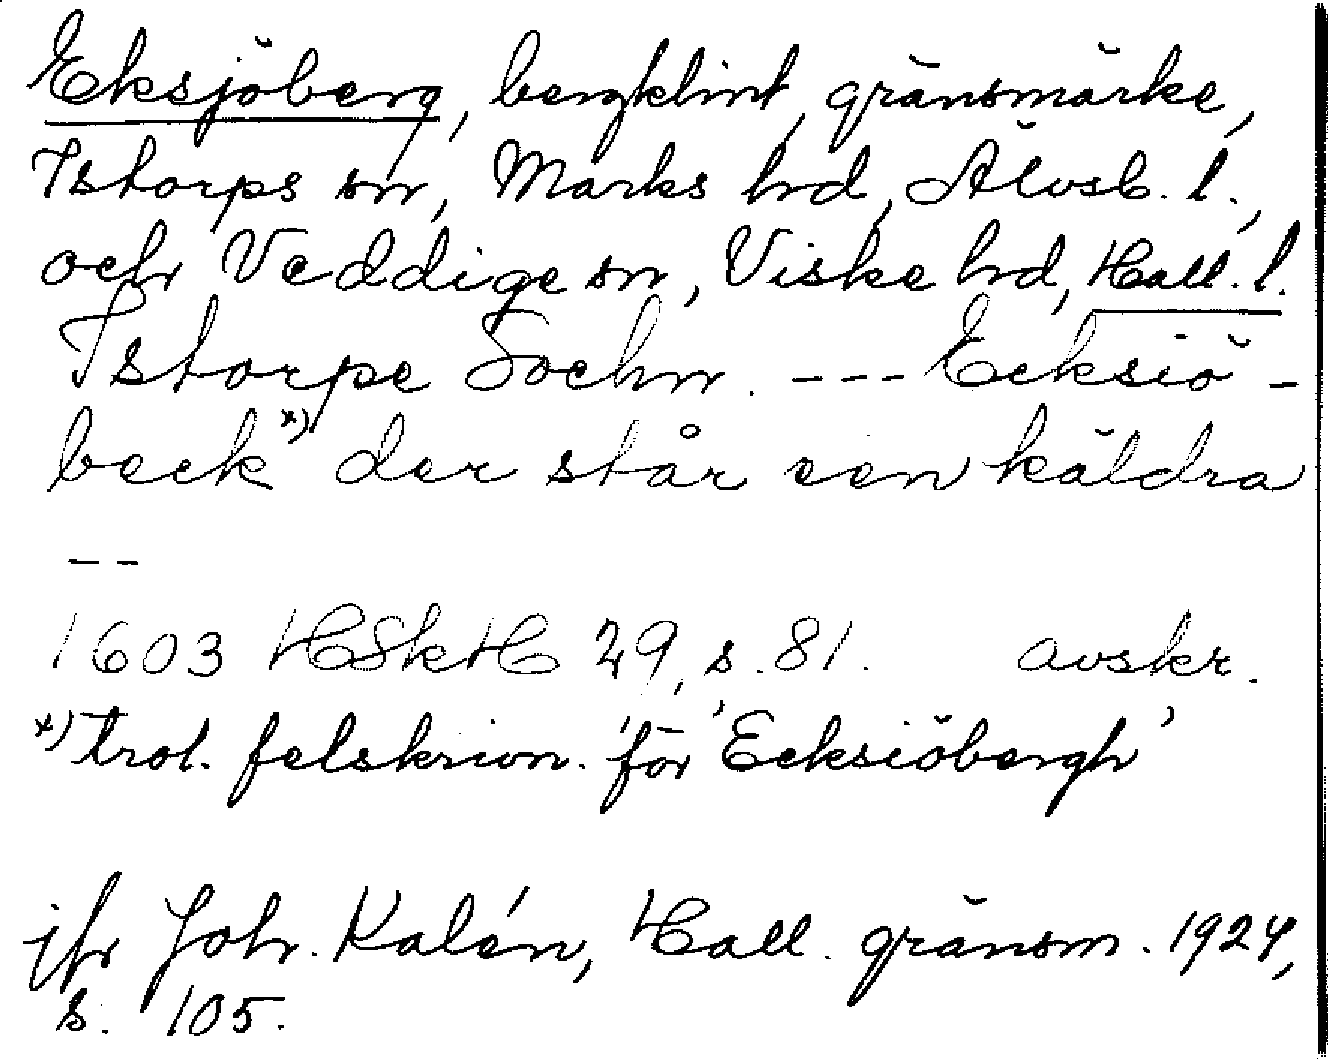 Eksjöberg, bergklint, gränsmärke,
Istorps sn, Marks hd, Älvsb. l.,
och Veddige sn, Viske hd, Hall. l.
Istorpe Sochn. --- Ecksiö-
beck *) der står een käldra
--
1603 HSkH 29, s. 81. avskr.
*) trol. felskrivn. för 'Ecksiöbergh'
jfr Joh. Kalén, Hall. gränsm. 1924,
s. 105.